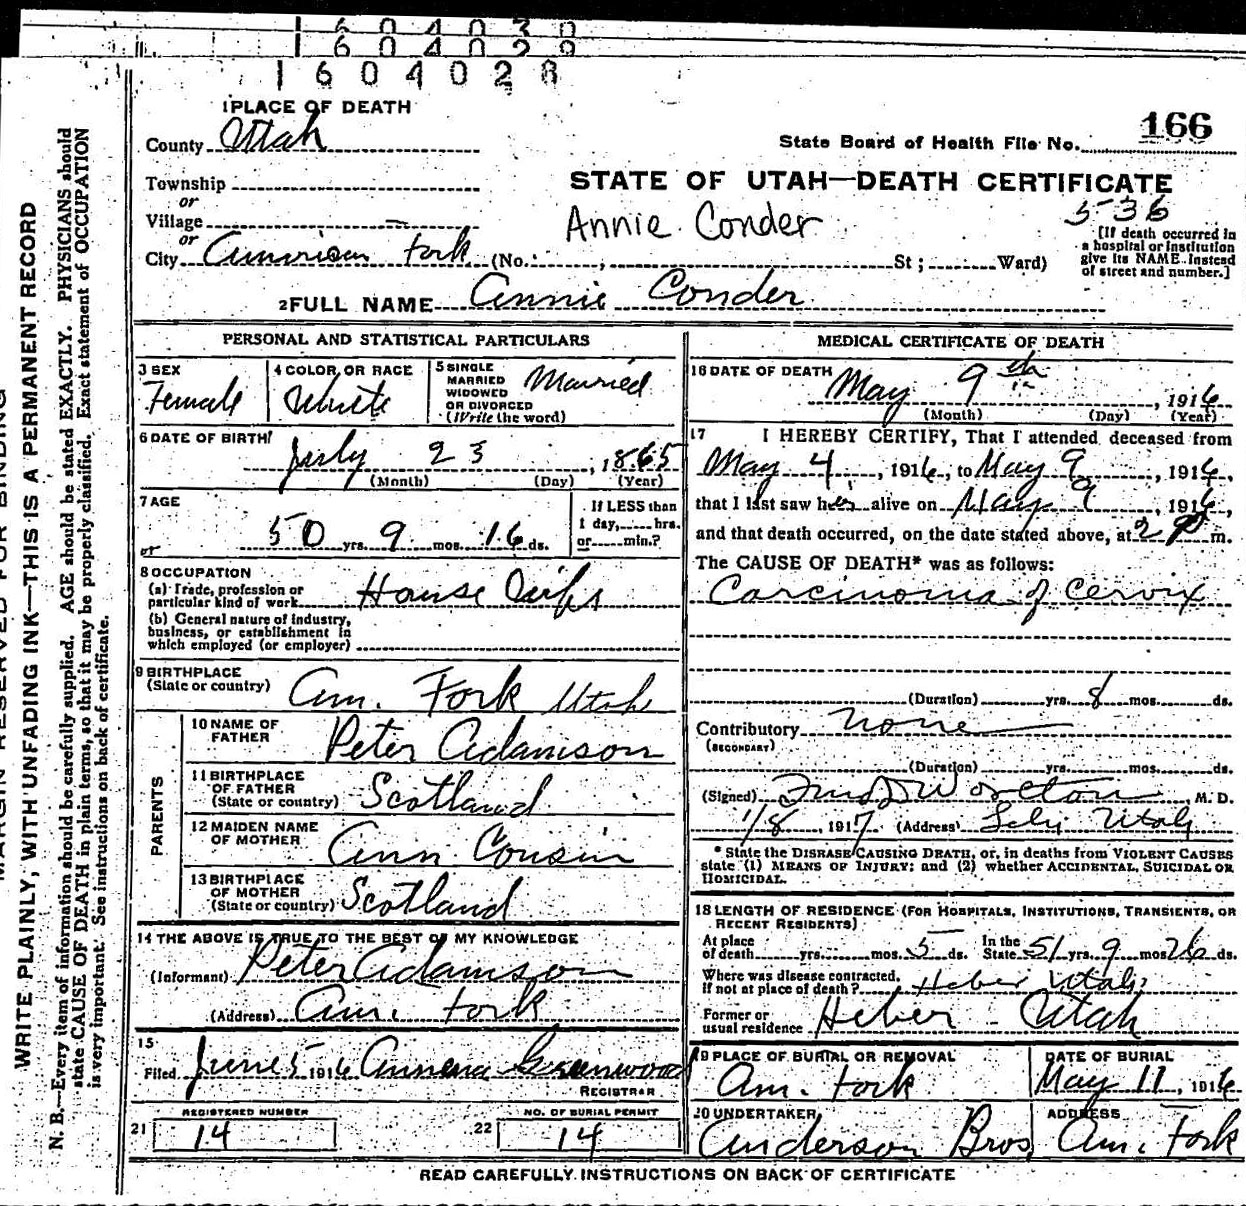 1 6 0 4 0 3 0
1 6 0 4 0 2 9
1 6 0 4 0 2 8
1 PLACE OF DEATH
County Utah
Township
or
Village —
or
City American Fork (No. , St ; Ward)
State Board of Health File No. 166
STATE OF UTAH—DEATH CERTIFICATE
Annie Conder
536
[If death occurred in
a hospital or institution
give its NAME instead
of street and number.]
2 FULL NAME Annie Conder
PERSONAL AND STATISTICAL PARTICULARS
3 SEX
Female
4 COLOR OR RACE
White
5 SINGLE
MARRIED
WIDOWED
OR DIVORCED
(Write the word)
Married
6 DATE OF BIRTH
July 23, 1865
(Month) (Day) (Year)
7 AGE
50 yrs. 9 mos. 16 ds.
If LESS than
1 day, hrs.
or min.?
or
8 OCCUPATION
(a) Trade, profession or
particular kind of work House Wife
(b) General nature of industry,
business, or establishment in
which employed (or employer)
9 BIRTHPLACE
(State or country) Am. Fork Utah
PARENTS
10 NAME OF
FATHER Peter Adamson
11 BIRTHPLACE
OF FATHER
(State or country) Scotland
12 MAIDEN NAME
OF MOTHER Ann Cousin
13 BIRTHPLACE
OF MOTHER
(State or country) Scotland
14 THE ABOVE IS TRUE TO THE BEST OF MY KNOWLEDGE
(Informant) Peter Adamson
(Address) Am. Fork
15
Filed June 5 1916 Greenwood
REGISTRAR
REGISTERED NUMBER
21 14
NO. OF BURIAL PERMIT
22 14
MEDICAL CERTIFICATE OF DEATH
16 DATE OF DEATH
May 9th, 1916
(Month) (Day) (Year)
17 I HEREBY CERTIFY, That I attended deceased from
May 4, 1916, to May 9, 1916,
that I last saw her alive on May 9, 1916,
and that death occurred, on the date stated above, at 2 P m.
The CAUSE OF DEATH* was as follows:
Carcinoma of Cervix
(Duration) yrs. 8 mos. ds.
Contributory none
(SECONDARY)
(Duration) yrs. mos. ds.
(Signed) Worlton, M. D.
1/8, 1917 (Address) Lehi Utah
* State the DISEASE CAUSING DEATH, or, in deaths from VIOLENT CAUSES
state (1) MEANS OF INJURY; and (2) whether ACCIDENTAL, SUICIDAL OR
HOMICIDAL.
18 LENGTH OF RESIDENCE (FOR HOSPITALS, INSTITUTIONS, TRANSIENTS, OR
RECENT RESIDENTS)
At place
of death yrs. mos. 5 ds.
In the
State 51 yrs. 9 mos 26 ds.
Where was disease contracted,
if not at place of death? Heber Utah
Former or
usual residence Heber - Utah
19 PLACE OF BURIAL OR REMOVAL
Am. Fork
DATE OF BURIAL
May 11, 1916
20 UNDERTAKER
Anderson Bros
ADDRESS
Am. Fork
READ CAREFULLY INSTRUCTIONS ON BACK OF CERTIFICATE
MARGIN RESERVED FOR BINDING
WRITE PLAINLY, WITH UNFADING INK—THIS IS A PERMANENT RECORD
N. B.—Every item of information should be carefully supplied. AGE should be stated EXACTLY. PHYSICIANS should
state CAUSE OF DEATH in plain terms, so that it may be properly classified. Exact statement of OCCUPATION
is very important. See instructions on back of certificate.